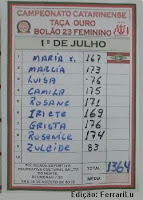 CAMPEONATO CATARINENSE
TAÇA OURO
BOLÃO 23 FEMININO
1º DE JULHO
MARIA T. 167
MARCIA 173
LUISA -76
CAMILA 175
ROSANE 171
IRICTE 169
CRISTA 176
ROSEMERE 174
ZULEIDE 83
TOTAL 1364
Edição: FerrariLu